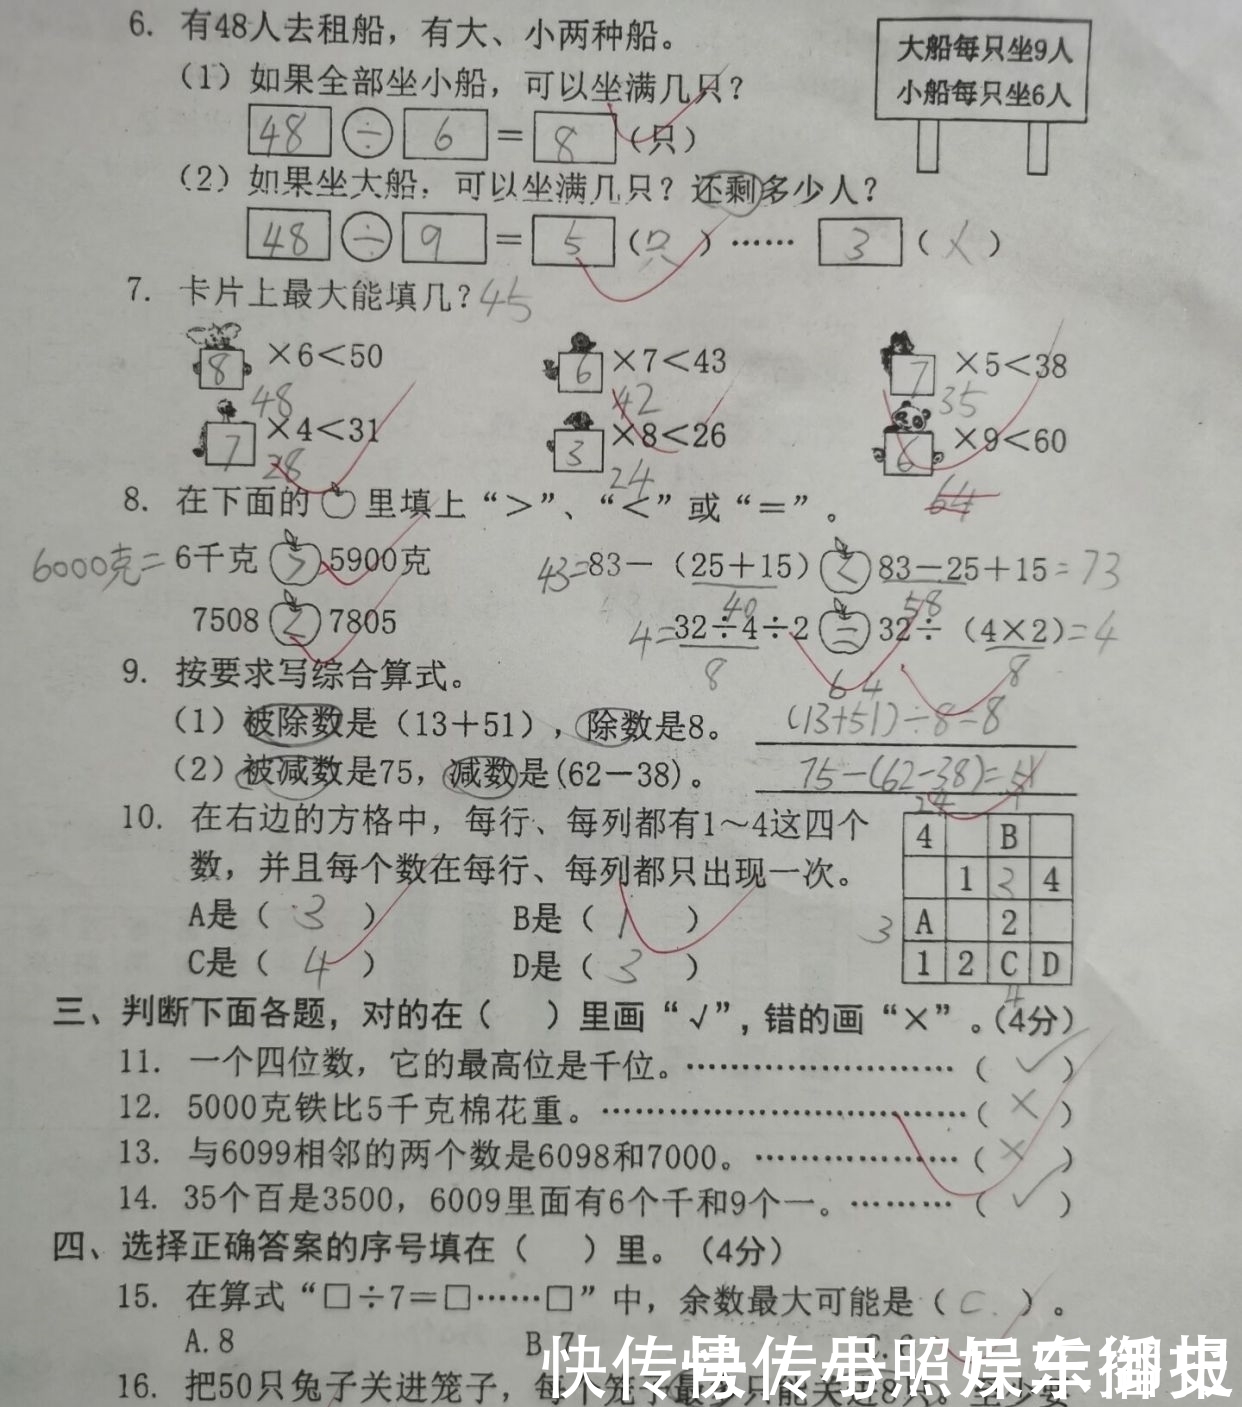 6. 有48人去租船，有大、小两种船。
大船每只坐9人
小船每只坐6人
（1）如果全部坐小船，可以坐满几只？
48 ÷ 6 = 8（只）
（2）如果坐大船，可以坐满几只？还剩多少人？
48 ÷ 9 = 5（只）…… 3（人）
7. 卡片上最大能填几？45
8 ×6＜50 6 ×7＜43 7 ×5＜38
48 42 35
7 ×4＜31 3 ×8＜26 6 ×9＜60
28 24 64
8. 在下面的 里填上“＞”、“＜”或“＝”。
6000克= 6千克 > 5900克 43=83－（25＋15） < 83－25＋15=73
40 58
7508 < 7805 4=32÷4÷2 = 32÷（4×2）=4
8 64 8
9. 按要求写综合算式。
（1）被除数是（13＋51），除数是8。 (13+51)÷8=8
（2）被减数是75，减数是(62－38)。 75-(62-38)=51
24
10. 在右边的方格中，每行、每列都有1～4这四个
数，并且每个数在每行、每列都只出现一次。
A是（ 3 ） B是（ 1 ）
C是（ 4 ） D是（ 3 ）
4 B
1 3 4
3 A 2
1 2 C D
4
三、判断下面各题，对的在（ ）里画“√”，错的画“×”。（4分）
11. 一个四位数，它的最高位是千位。……………………（ √ ）
12. 5000克铁比5千克棉花重。……………………………（ × ）
13. 与6099相邻的两个数是6098和7000。………………（ × ）
14. 35个百是3500，6009里面有6个千和9个一。………（ √ ）
四、选择正确答案的序号填在（ ）里。（4分）
15. 在算式“□÷7＝□……□”中，余数最大可能是（ C. ）。
A.8 B.7
16. 把50只兔子关进笼子，每个笼子最多只能关进8只。至少要
快传